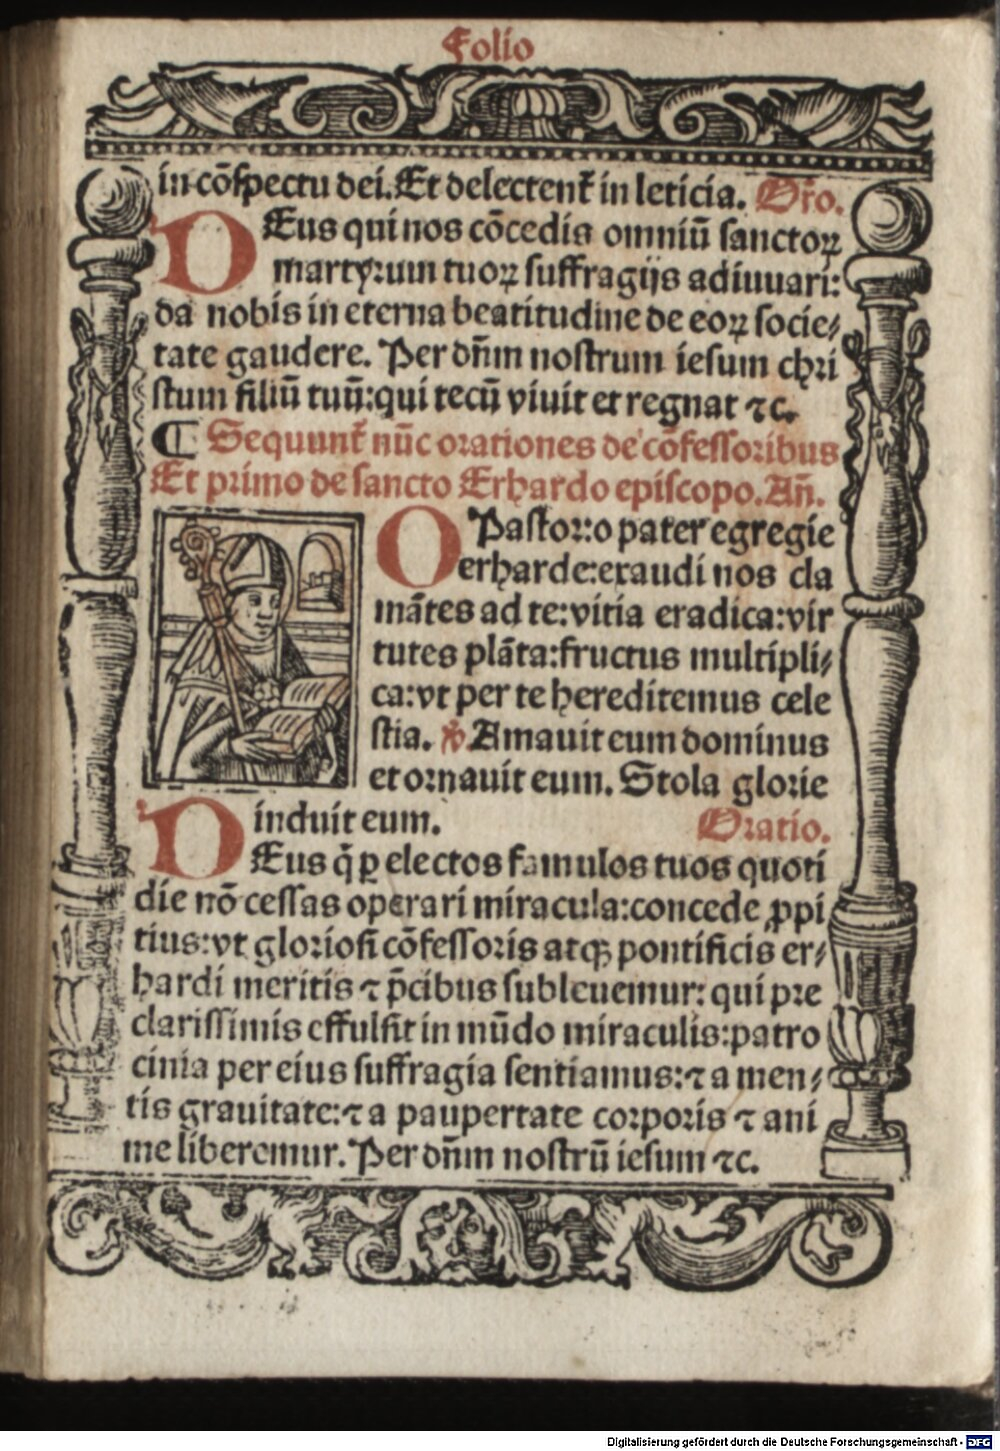 Folio
in cōspectu dei. Et delectent᷑ in leticia. Or̄o.
DEus qui nos cōcedis omniū sanctoꝝ
martyrum tuoꝝ suffragijs adiuuari:
da nobis in eterna beatitudine de eoꝝ socie⸗
tate gaudere. Per dn̄m nostrum iesum chri
stum filiū tuū: qui tecū viuit et regnat ⁊c.
¶ Sequunt᷑ nūc orationes de cōfessoribus
Et primo de sancto Erhardo episcopo. An̄.
O Pastor: o pater egregie
erharde: exaudi nos cla
mātes ad te: vitia eradica: vir
tutes plāta: fructus multipli⸗
ca: vt per te hereditemus cele
stia. ℣. Amauit eum dominus
et ornauit eum. Stola glorie
induit eum. Oratio.
DEus q̄ ꝑ electos famulos tuos quoti
die nō cessas operari miracula: concede ꝓpi
tius: vt gloriosi cōfessoris atqꝫ pontificis er⸗
hardi meritis ⁊ p̄cibus subleuemur: qui pre
clarissimis effulsit in mūdo miraculis: patro
cinia per eius suffragia sentiamus: ⁊ a men⸗
tis grauitate: ⁊ a paupertate corporis ⁊ ani
me liberemur. Per dn̄m nostrū iesum ⁊c.
Digitalisierung gefördert durch die Deutsche Forschungsgemeinschaft - DFG